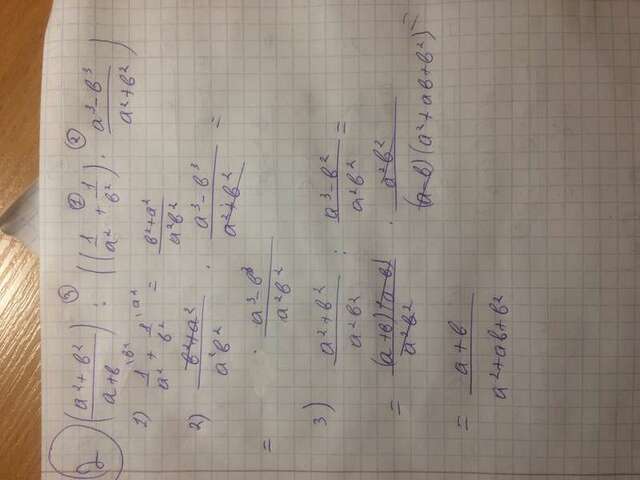 2) ((a² + b²)/(a + b)) : ((1/a² + 1/b²) · (a³ - b³)/(a² + b²))
1) 1/a² + 1/b² = (b² + a²)/(a²b²)
2) (b² + a²)/(a²b²) · (a³ - b³)/(a² + b²) =
= (a³ - b³)/(a²b²)
3) (a² + b²)/(a²b²) : (a³ - b²)/(a²b²) =
= (a+b)(a-b)/(a²b²) · (a²b²)/((a-b)(a²+ab+b²)) =
= (a + b)/(a² + ab + b²)